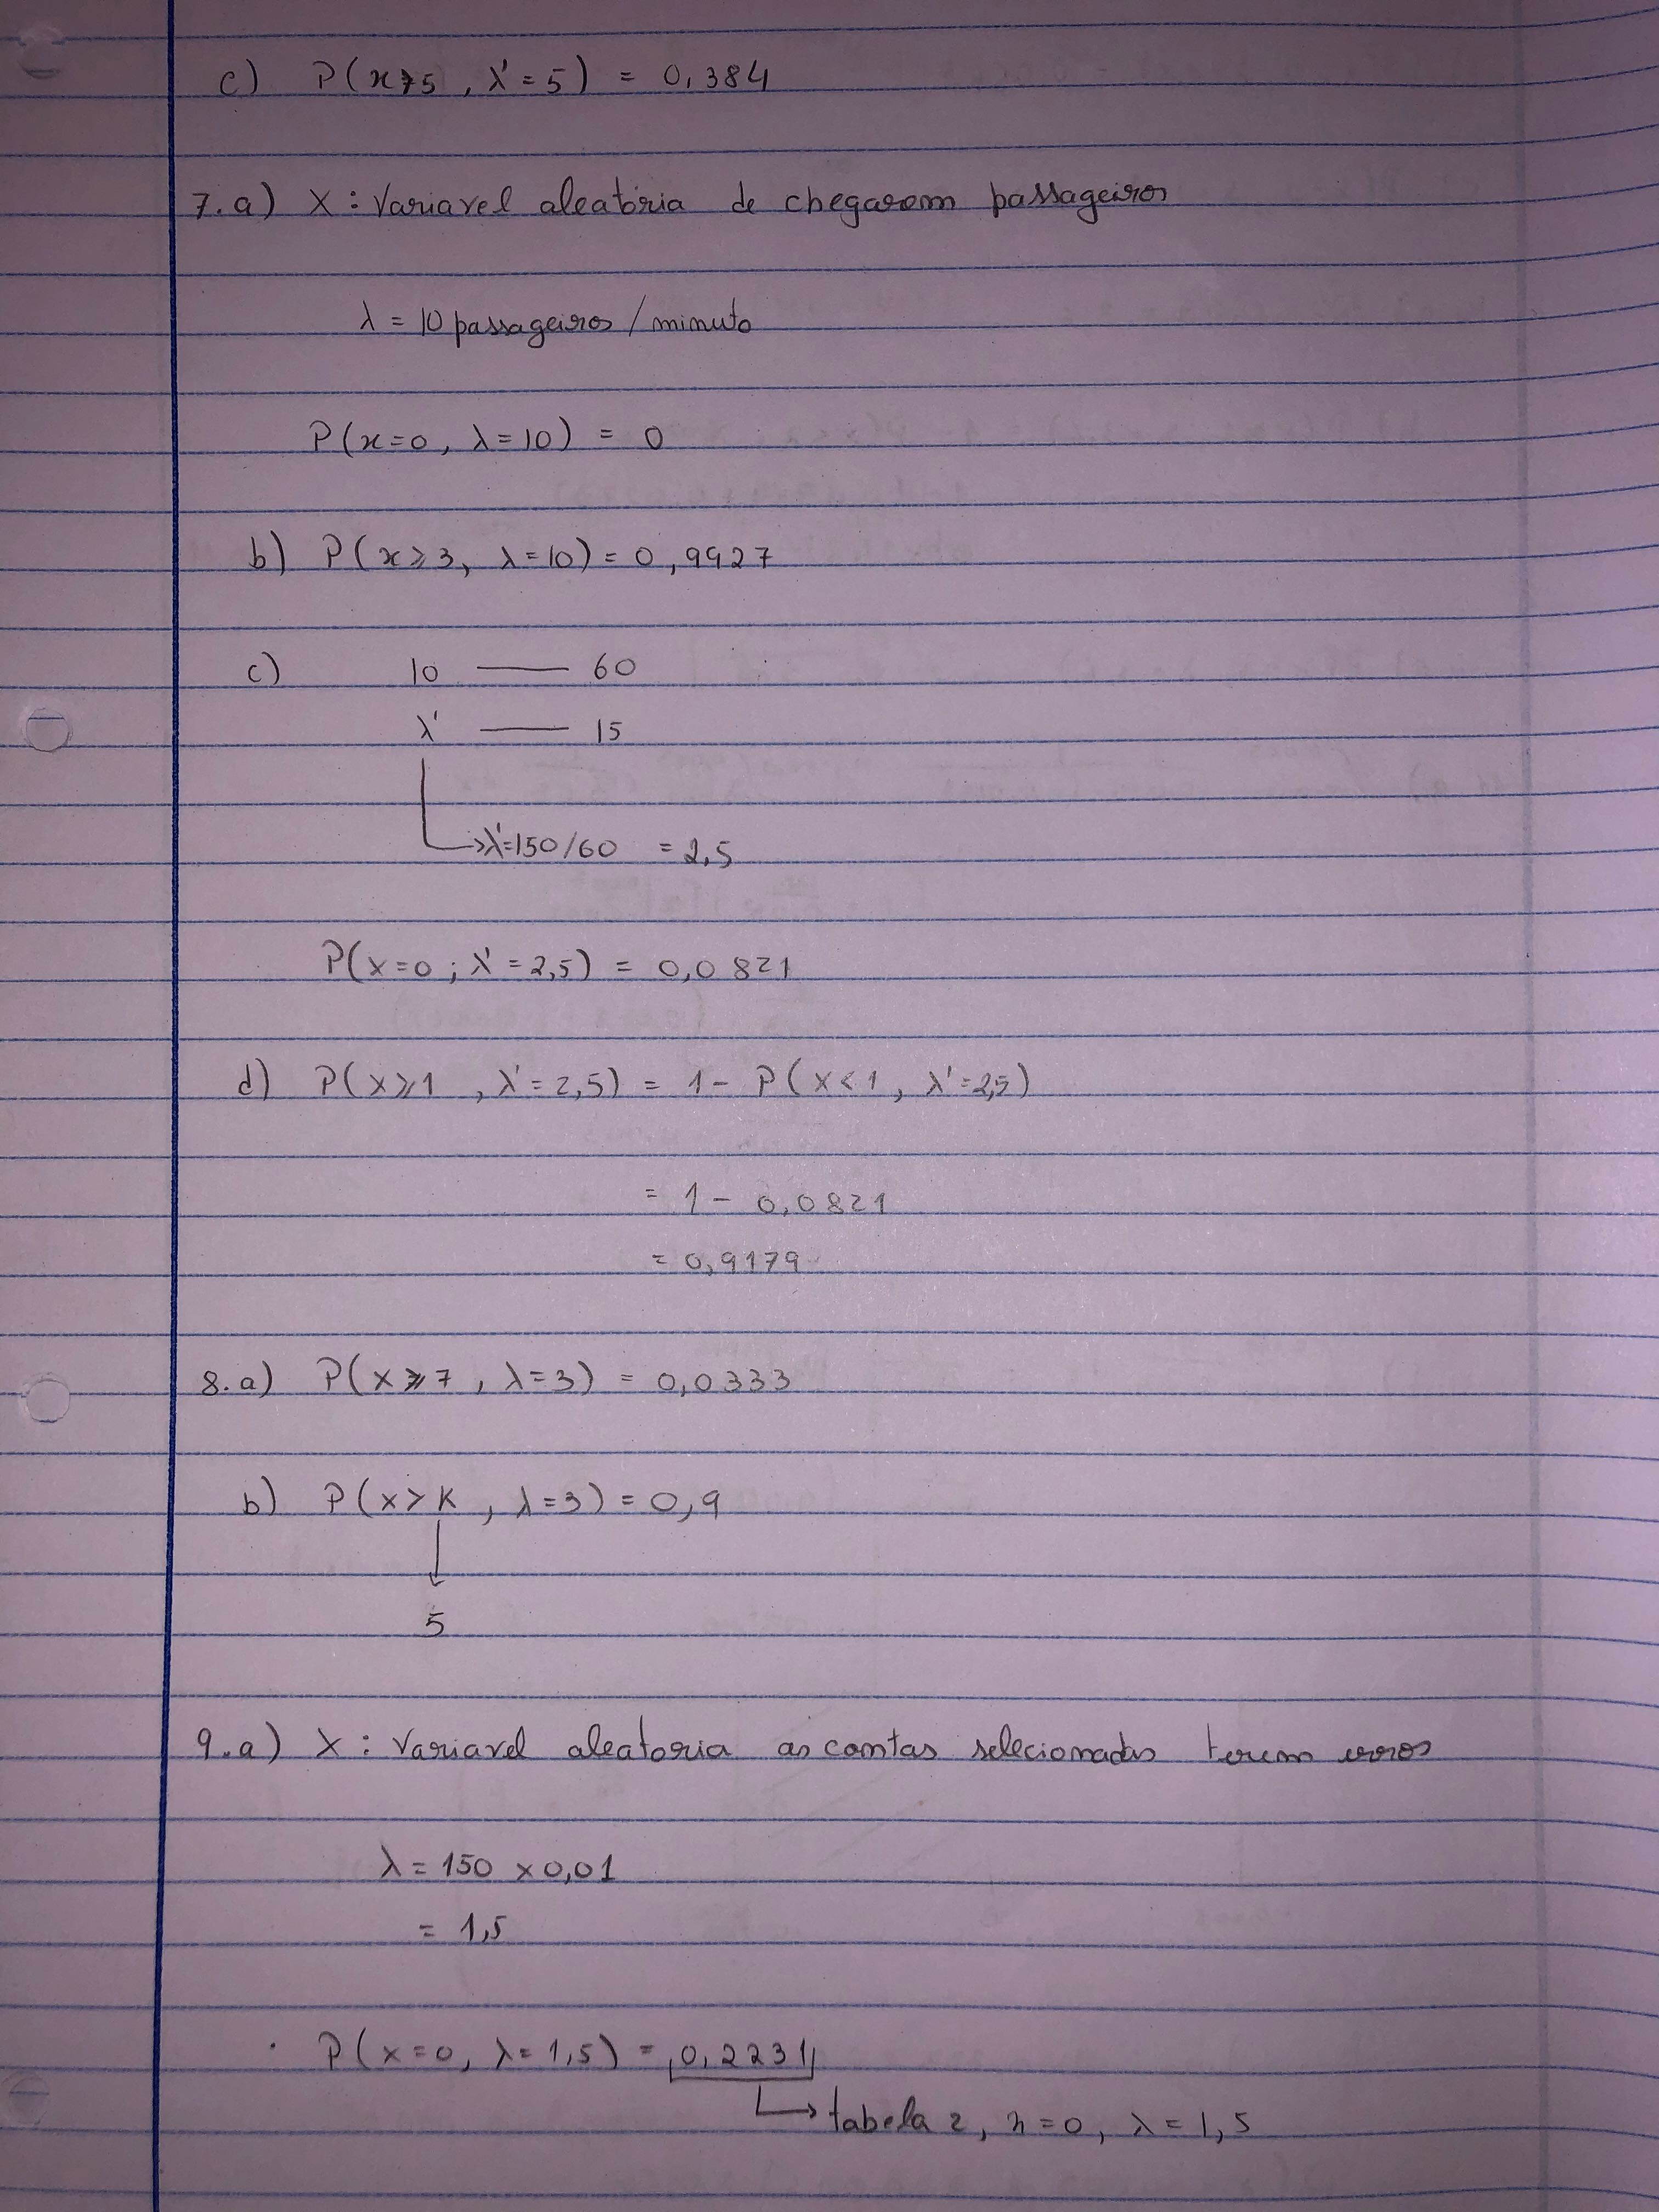 c) P(x>5 , λ' = 5) = 0,384
7.a) X : Variavel aleatória de chegarem passageiros
λ = 10 passageiros / minuto
P(x=0, λ=10) = 0
b) P(x≥3, λ=10) = 0,9927
c) 10 —— 60
λ' —— 15
→ λ'=150/60 = 2,5
P(x=0 ; λ' = 2,5) = 0,0821
d) P(x≥1 , λ' = 2,5) = 1 - P(x<1 , λ'=2,5)
= 1 - 0,0821
= 0,9179
8.a) P(x≥7 , λ=3) = 0,0333
b) P(x>K , λ=3) = 0,9
↓
5
9.a) X : Variavel aleatoria as contas selecionadas terem erros
λ = 150 x 0,01
= 1,5
· P(x=0, λ=1,5) = 0,2231
→ tabela 2, n=0, λ=1,5